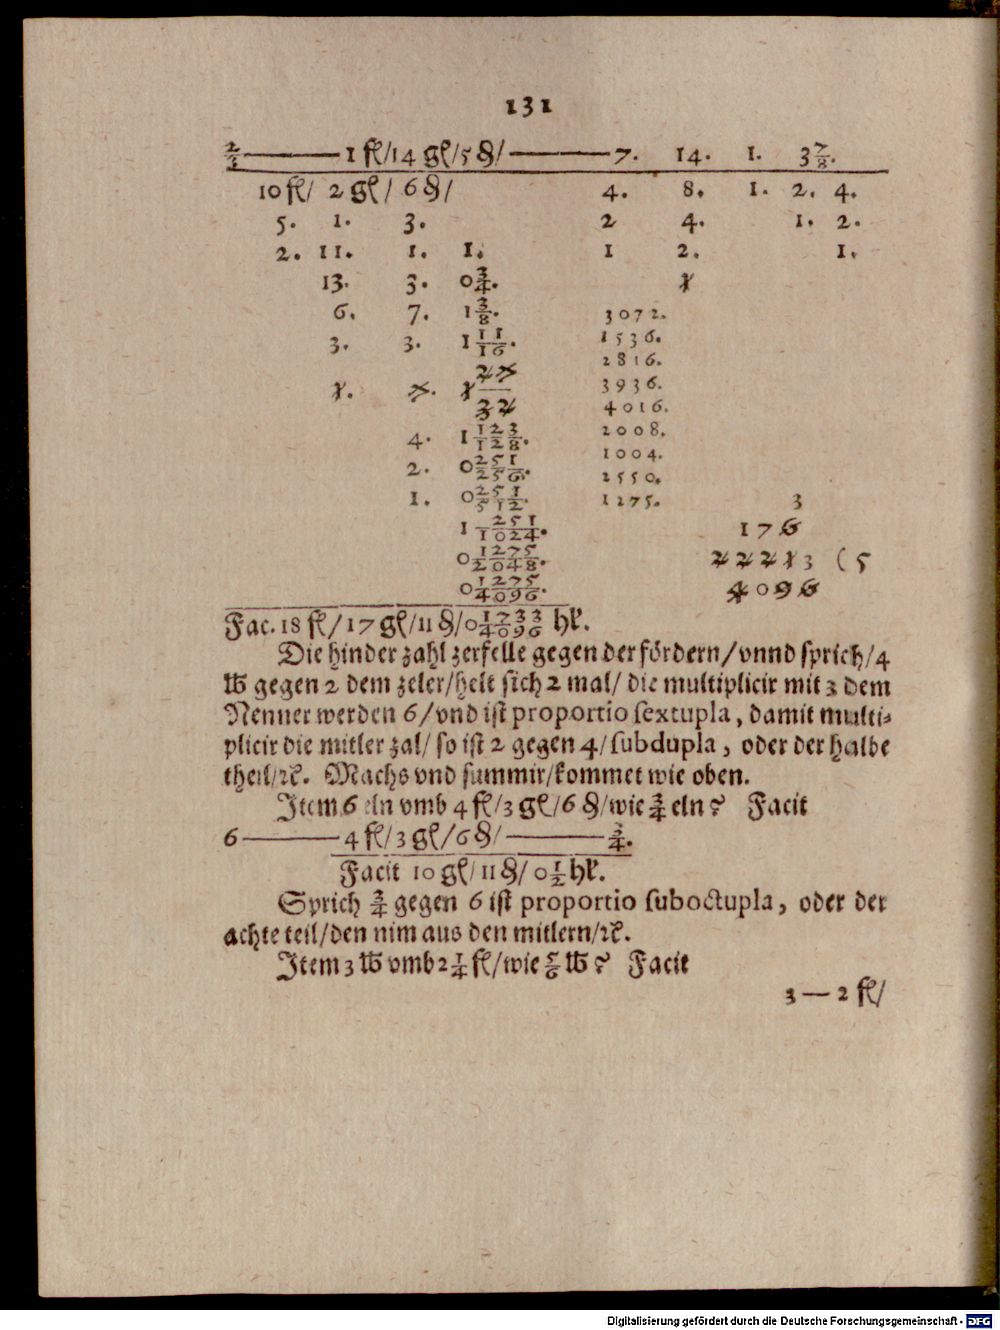 131
2/3 —— 1 fl/14 gl/5 ₰/ —— 7. 14. 1. 3 7/8.
10 fl/ 2 gl/ 6 ₰/ 4. 8. 1. 2. 4.
5. 1. 3. 2 4. 1. 2.
2. 11. 1. 1. 1 2. 1.
13. 3. 0 3/4. 1
6. 7. 1 3/8. 3072.
3. 3. 1 11/16. 1536.
2816.
1. 7. 1 27/32 3936.
4016.
4. 1 123/128. 2008.
2. 0 251/256. 1004.
2550.
1. 0 251/512. 1275. 3
1 251/1024. 176
0 1275/2048. 22213 (5
0 1275/4096. 4096
Fac. 18 fl/17 gl/11 ₰/0 1733/4096 hl.
Die hinder zahl zerfelle gegen der fördern/vnnd sprich/4
℔ gegen 2 dem zeler/helt sich 2 mal/ die multiplicir mit 3 dem
Nenner werden 6/vnd ist proportio sextupla, damit multi-
plicir die mitler zal/ so ist 2 gegen 4/subdupla, oder der halbe
theil/ꝛc. Machs vnd summir/kommet wie oben.
Item 6 eln vmb 4 fl/3 gl/6 ₰/wie 3/4 eln? Facit
6 —— 4 fl/3 gl/6 ₰/ —— 3/4.
Facit 10 gl/11 ₰/ 0 1/2 hl.
Sprich 3/4 gegen 6 ist proportio suboctupla, oder der
achte teil/den nim aus den mitlern/ꝛc.
Item 3 ℔ vmb 2 1/4 fl/wie 5/6 ℔? Facit
3 — 2 fl/
Digitalisierung gefördert durch die Deutsche Forschungsgemeinschaft - DFG